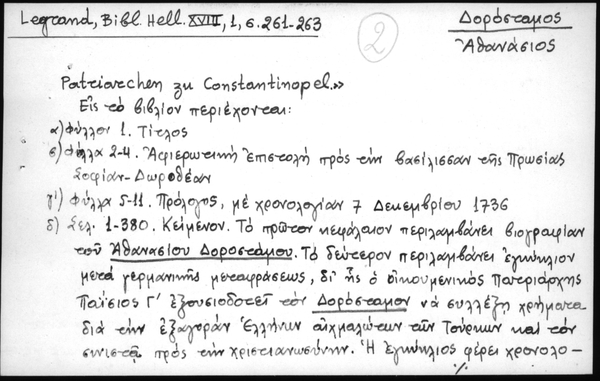 Legrand, Bibl. Hell. XVIII, 1, σ. 261-263
2
Δορόσταμος
Ἀθανάσιος
Patriarchen zu Constantinopel.»
Εἰς τὸ βιβλίον περιέχονται:
α) Φύλλον 1. Τίτλος
β) Φύλλα 2-4. Ἀφιερωτικὴ ἐπιστολὴ πρὸς τὴν βασίλισσαν τῆς Πρωσίας
Σοφίαν-Δωροθέαν
γ) Φύλλα 5-11. Πρόλογος, μὲ χρονολογίαν 7 Δεκεμβρίου 1736
δ) Σελ. 1-380. Κείμενον. Τὸ πρῶτον κεφάλαιον περιλαμβάνει βιογραφίαν
τοῦ Ἀθανασίου Δοροστάμου. Τὸ δεύτερον περιλαμβάνει ἐγκύκλιον
μετὰ γερμανικῆς μεταφράσεως, δι' ἧς ὁ οἰκουμενικὸς Πατριάρχης
Παΐσιος Γ' ἐξουσιοδοτεῖ τὸν Δορόσταμον νὰ συλλέξῃ χρήματα
διὰ τὴν ἐξαγορὰν Ἑλλήνων αἰχμαλώτων τῶν Τούρκων καὶ τὸν
συνιστᾷ πρὸς τὴν χριστιανωσύνην. Ἡ ἐγκύκλιος φέρει χρονολο-
./.